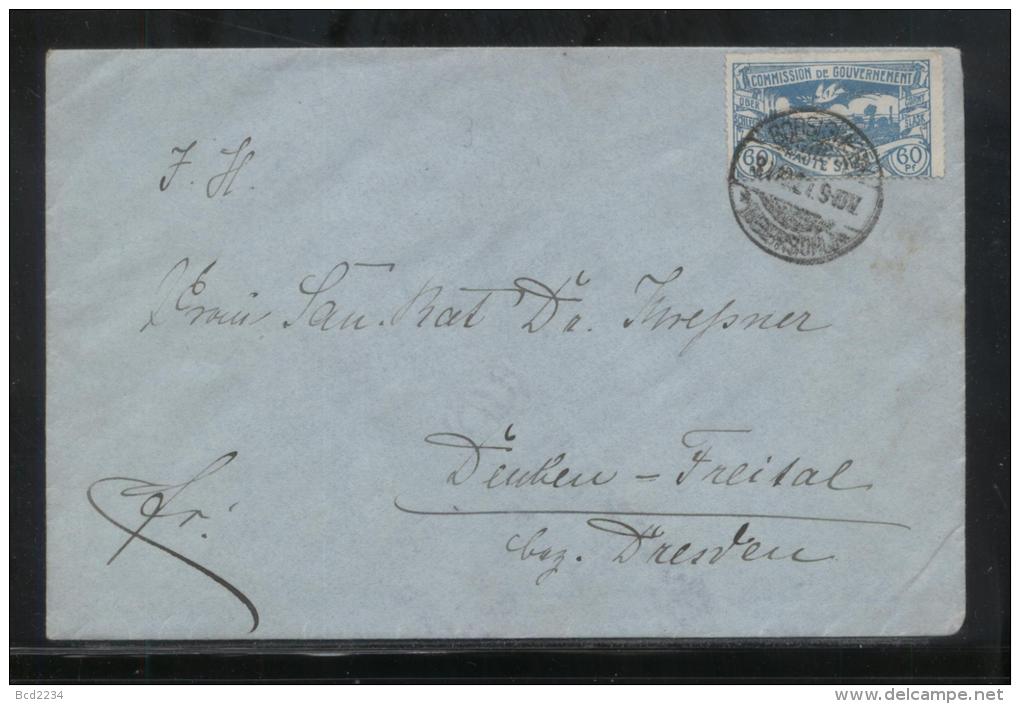 COMMISSION DE GOUVERNEMENT
OBER SCHLES
GORNY SLASK
HAUTE SIL
60 60
Pf
J. H.
Frau San. Rat Dr. Kreßner
Deuben – Freital
bez. Dresden
fr.
Bcd2234
delcampe.net